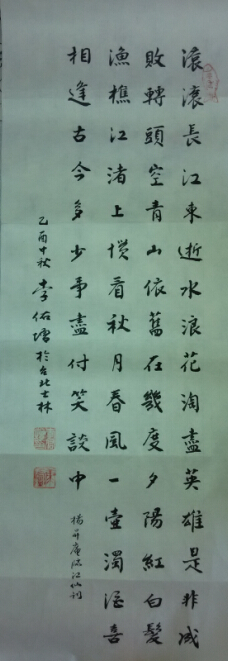 滾滾長江東逝水浪花淘盡英雄是非成
敗轉頭空青山依舊在幾度夕陽紅白髮
漁樵江渚上慣看秋月春風一壺濁酒喜
相逢古今多少事盡付笑談中
楊升庵臨江仙詞
乙酉中秋李佑增於台北士林